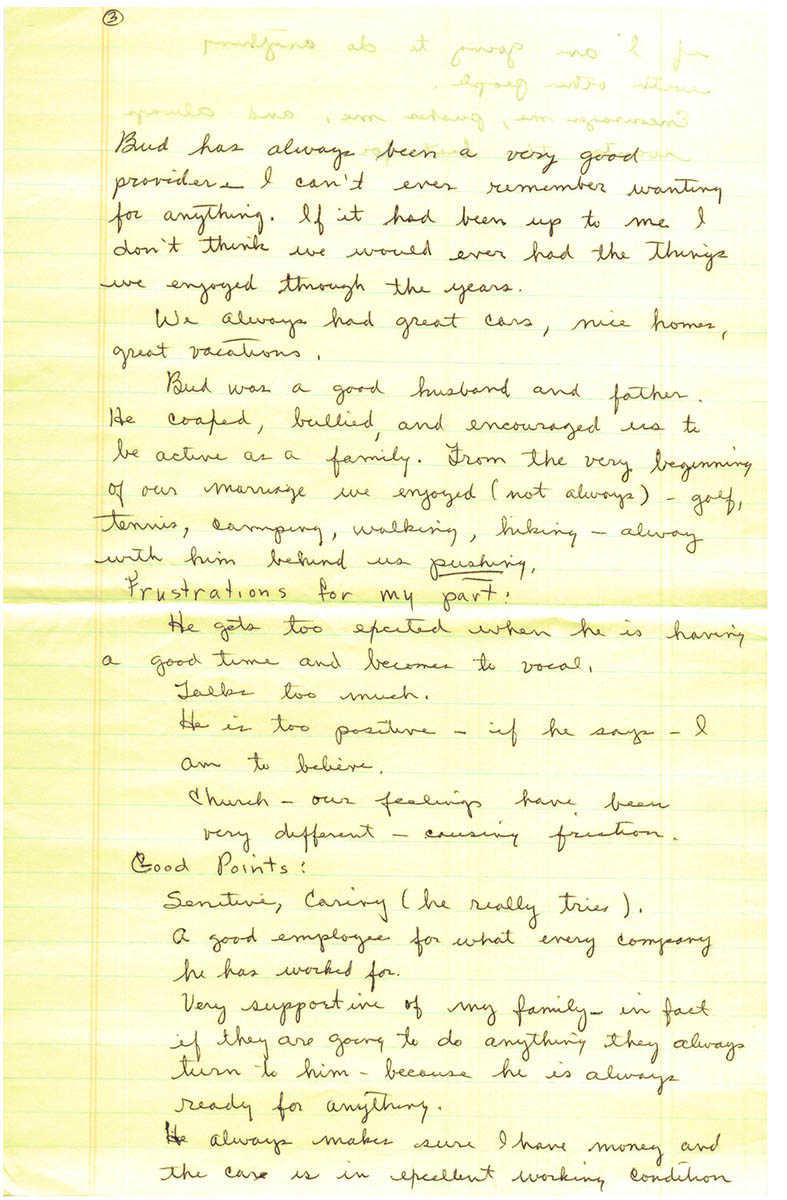 3
Bud has always been a very good
provider - I can't ever remember wanting
for anything. If it had been up to me I
don't think we would ever had the things
we enjoyed through the years.
We always had great cars, nice homes,
great vacations.
Bud was a good husband and father.
He coaped, bullied, and encouraged us to
be active as a family. From the very beginning
of our marriage we enjoyed (not always) - golf,
tennis, camping, walking, hiking - alway
with him behind us pushing.
Frustrations for my part:
He gets too excited when he is having
a good time and becomes to vocal.
Talks too much.
He is too positive - if he says - I
am to believe.
Church - our feelings have been
very different - causing friction.
Good Points:
Senitive, Caring (he really tries).
A good employee for what every company
he has worked for.
Very supportive of my family - in fact
if they are going to do anything they always
turn to him - because he is always
ready for anything.
He always makes sure I have money and
the car is in excellent working condition
if I am going to do anything
with other people.
Encourage me, pushes me, and always